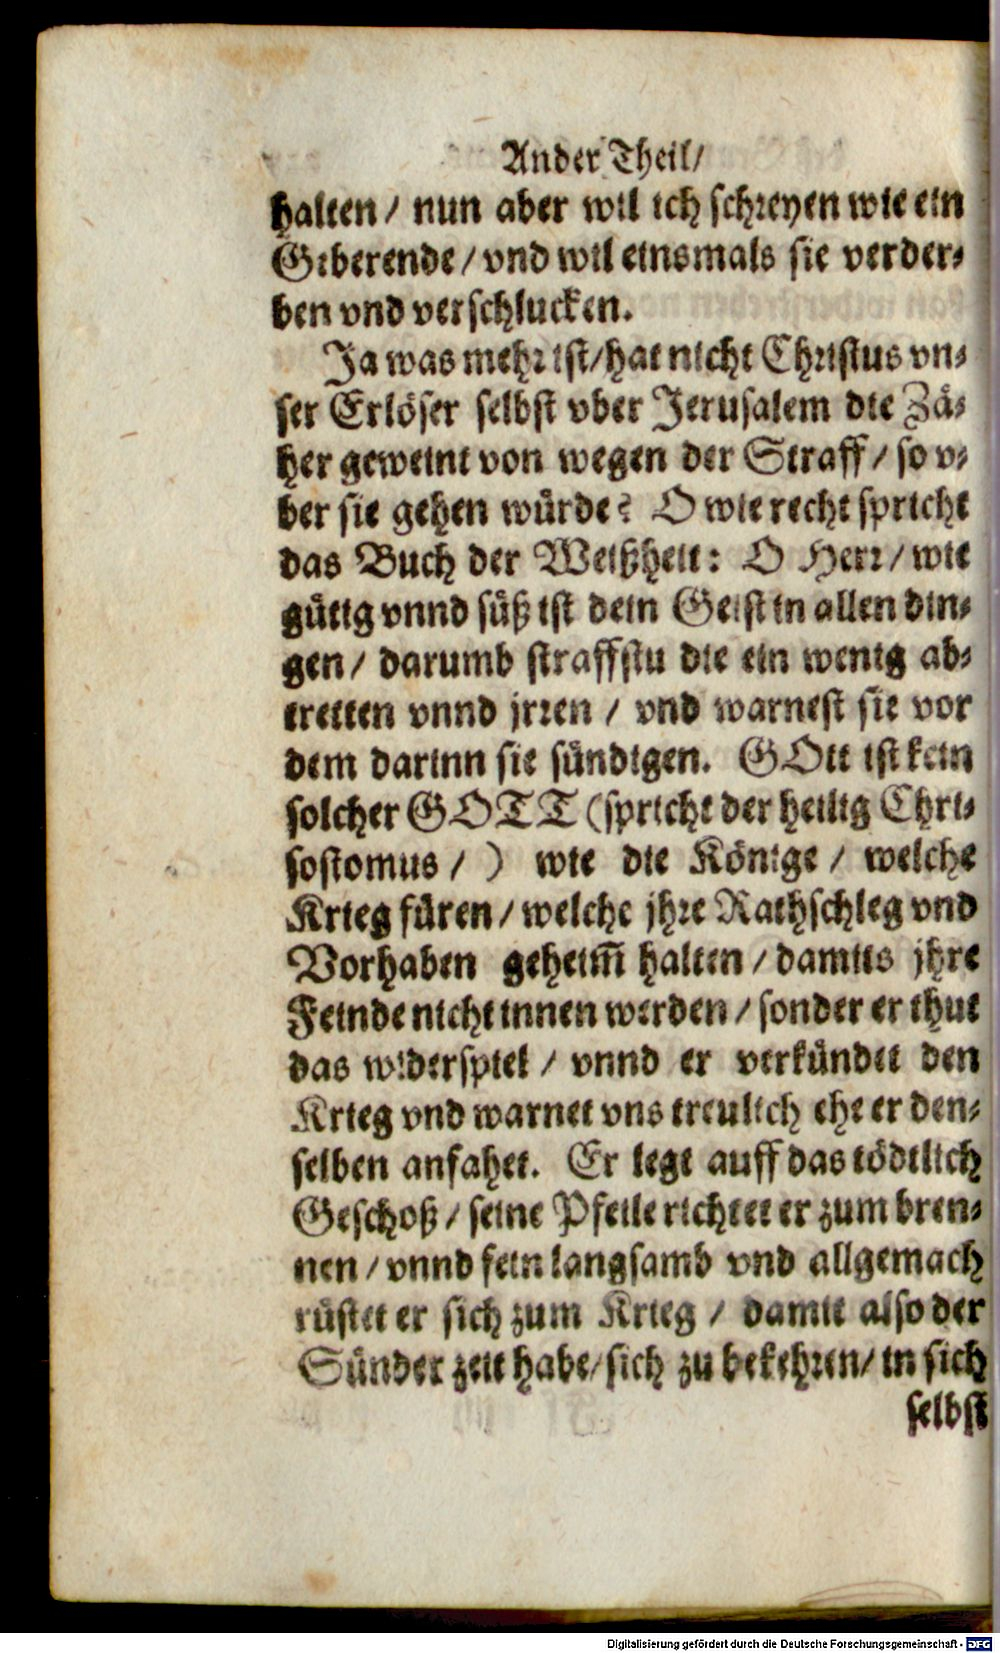 Ander Theil/
halten/ nun aber wil ich schreyen wie ein
Geberende/ vnd wil einsmals sie verder⸗
ben vnd verschlucken.
Ja was mehr ist/ hat nicht Christus vn⸗
ser Erlöser selbst vber Jerusalem die Zä⸗
her geweint von wegen der Straff/ so v⸗
ber sie gehen würde? O wie recht spricht
das Buch der Weißheit: O Herr/ wie
gütig vnnd süß ist dein Geist in allen din⸗
gen/ darumb straffstu die ein wenig ab⸗
tretten vnnd jrren/ vnd warnest sie vor
dem darinn sie sündigen. GOtt ist kein
solcher GOTT (spricht der heilig Chri⸗
sostomus/) wie die Könige/ welche
Krieg füren/ welche jhre Rathschleg vnd
Vorhaben geheim̃ halten/ damits jhre
Feinde nicht innen werden/ sonder er thut
das widerspiel/ vnnd er verkündet den
Krieg vnd warnet vns treulich ehe er den⸗
selben anfahet. Er legt auff das tödtlich
Geschoß/ seine Pfeile richtet er zum bren⸗
nen/ vnnd fein langsamb vnd allgemach
rüstet er sich zum Krieg/ damit also der
Sünder zeit habe/ sich zu bekehren/ in sich
selbst
Digitalisierung gefördert durch die Deutsche Forschungsgemeinschaft - DFG